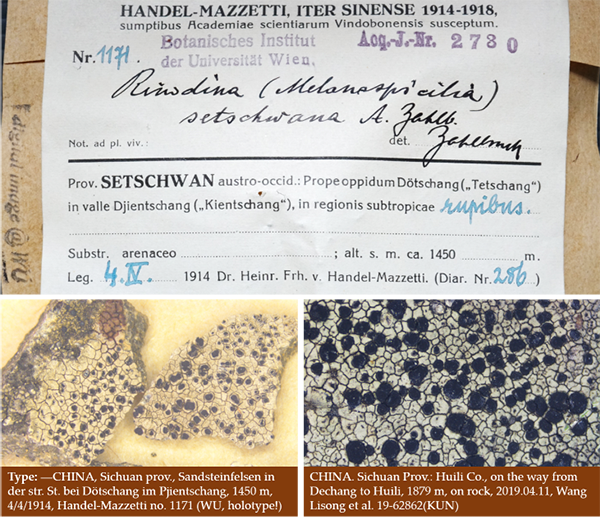 HANDEL-MAZZETTI, ITER SINENSE 1914-1918,
sumptibus Academiae scientiarum Vindobonensis susceptum.
Nr. 1171. Botanisches Institut Acq.-J.-Nr. 2730
der Universität Wien.
Rinodina (Melanaspicilia)
setschwana A. Zahlb.
Not. ad pl. viv.: det. Zahlbruck
Prov. SETSCHWAN austro-occid.: Prope oppidum Dötschang („Tetschang")
in valle Djientschang („Kientschang"), in regionis subtropicae rupibus.
Substr. arenaceo ; alt. s. m. ca. 1450 m.
Leg. 4. IV. 1914 Dr. Heinr. Frh. v. Handel-Mazzetti. (Diar. Nr. 286)
digital image @ WU
Type: —CHINA, Sichuan prov., Sandsteinfelsen in
der str. St. bei Dötschang im Pjientschang, 1450 m,
4/4/1914, Handel-Mazzetti no. 1171 (WU, holotype!)
CHINA. Sichuan Prov.: Huili Co., on the way from
Dechang to Huili, 1879 m, on rock, 2019.04.11, Wang
Lisong et al. 19-62862(KUN)